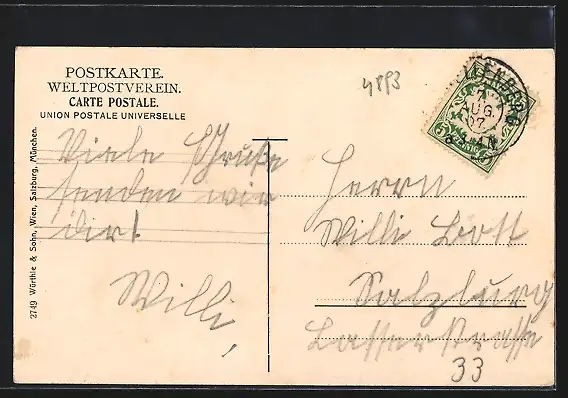 POSTKARTE.
WELTPOSTVEREIN.
CARTE POSTALE.
UNION POSTALE UNIVERSELLE
4893
7
AUG.
07
2749 Würthle & Sohn, Wien, Salzburg, München.
Viele Grüße
senden wir
dir!
Willi,
Herrn
Willi Bott
Salzburg
Lasserstrasse
33